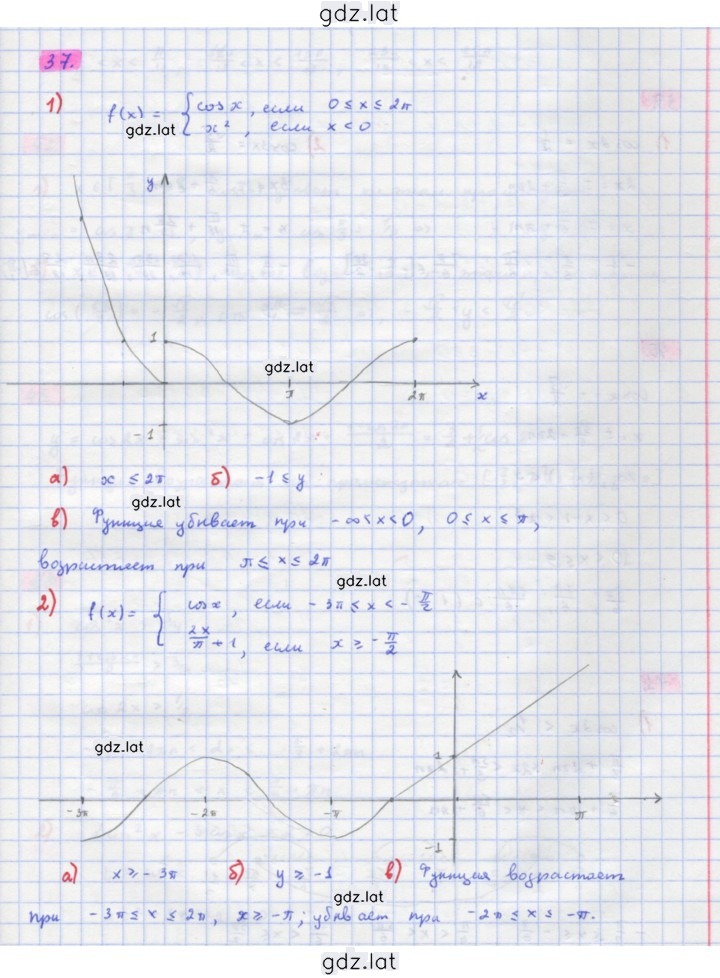 gdz.lat
37.
1) f(x) = { cos x, если 0 ≤ x ≤ 2π
gdz.lat
x², если x < 0
y
1
gdz.lat
π 2π x
-1
а) x ≤ 2π б) -1 ≤ y
gdz.lat
в) Функция убывает при -∞ < x < 0, 0 ≤ x ≤ π,
возрастает при π ≤ x ≤ 2π
gdz.lat
2) f(x) = { cos x, если -3π ≤ x < -π/2
2x/π + 1, если x ≥ -π/2
gdz.lat
1
-3π -2π -π π
-1
а) x ≥ -3π б) y ≥ -1 в) Функция возрастает
gdz.lat
при -3π ≤ x ≤ 2π, x ≥ -π; убывает при -2π ≤ x ≤ -π.
gdz.lat